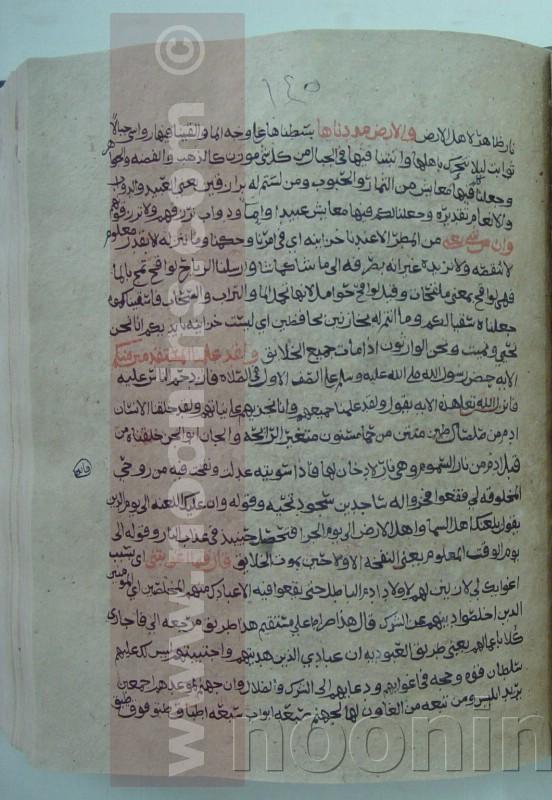 ١٤٥
نار ظاهرة لاهل الارض والارض مددناها بسطناها على وجه الما والقينا فيها رواسي جبالا
ثوابت ليلا تتحرك باهلها وانبتنا فيها في الجبال من كل شي موزون كالذهب والفضة
وجعلنا لكم فيها معايش من الثمار والحبوب ومن لستم له برازقين يعني العبيد والدواب
والانعام تقديره وجعلنا لكم فيها معايش عبيدا واما ودواب نرزقهم ولا ترزقونهم
وان من شي يعني من المطر الا عندنا خزاينه اي في امرنا وحكمنا وما ننزله الا بقدر معلوم
لا ننقصه ولا نزيده غير انه يصرفه الى من يشا كما شا وارسلنا الرياح لواقح تمج بالما
فهي لواقح بمعنى ملقحات وقيل لواقح حوامل لانها تحمل الما والتراب والسحاب فاسقيناكموه
جعلناه سقيا لكم وما انتم له بخازنين بحافظين اي ليست خزاينه بايديكم وانا لنحن
نحيي ونميت ونحن الوارثون اذا مات جميع الخلايق ولقد علمنا المستقدمين منكم
الاية حض رسول الله صلى الله عليه وسلم على الصف الاول في الصلاة فازدحم الناس عليه
فانزل الله تعالى هذه الاية يقول ولقد علمنا جميعهم وانا نجزيهم على نياتهم ولقد خلقنا الانسان
ادم من صلصال طين منتن من حما مسنون متغير الرائحة والجان ابو الجن خلقناه من
قبل ادم من نار السموم وهي نار لا دخان لها فاذا سويته عدلت ونفخت فيه من روحي
المخلوقة لي فقعوا فخروا له ساجدين سجود تحية وقوله وان عليك اللعنة الى يوم الدين
يقول يلعنك اهل السما واهل الارض الى يوم الجزا فتحصل حينيذ في عذاب النار وقوله الى
يوم الوقت المعلوم يعني النفخة الاولى حين يموت الخلايق قال رب بما اغويتني اي بسبب
اغوايك لي لازينن لهم لاولاد ادم الباطل حتى يقعوا فيه الا عبادك منهم المخلصين اي
الذين اخلصوا دينهم عن الشرك قال هذا صراط علي مستقيم هذا طريق مرجعه الي فاجازي
كلا باعمالهم يعني طريق العبودية ان عبادي الذين هديتهم واجتبيتهم ليس لك عليهم
سلطان قوة وحجة في اغوايهم ودعايهم الى الشرك والضلال وان جهنم لموعدهم اجمعين
يريد ابليس ومن تبعه من الغاوين لها لجهنم سبعة ابواب سبعة اطباق طبق فوق طبق
www.alborhanset.com ©
noonin